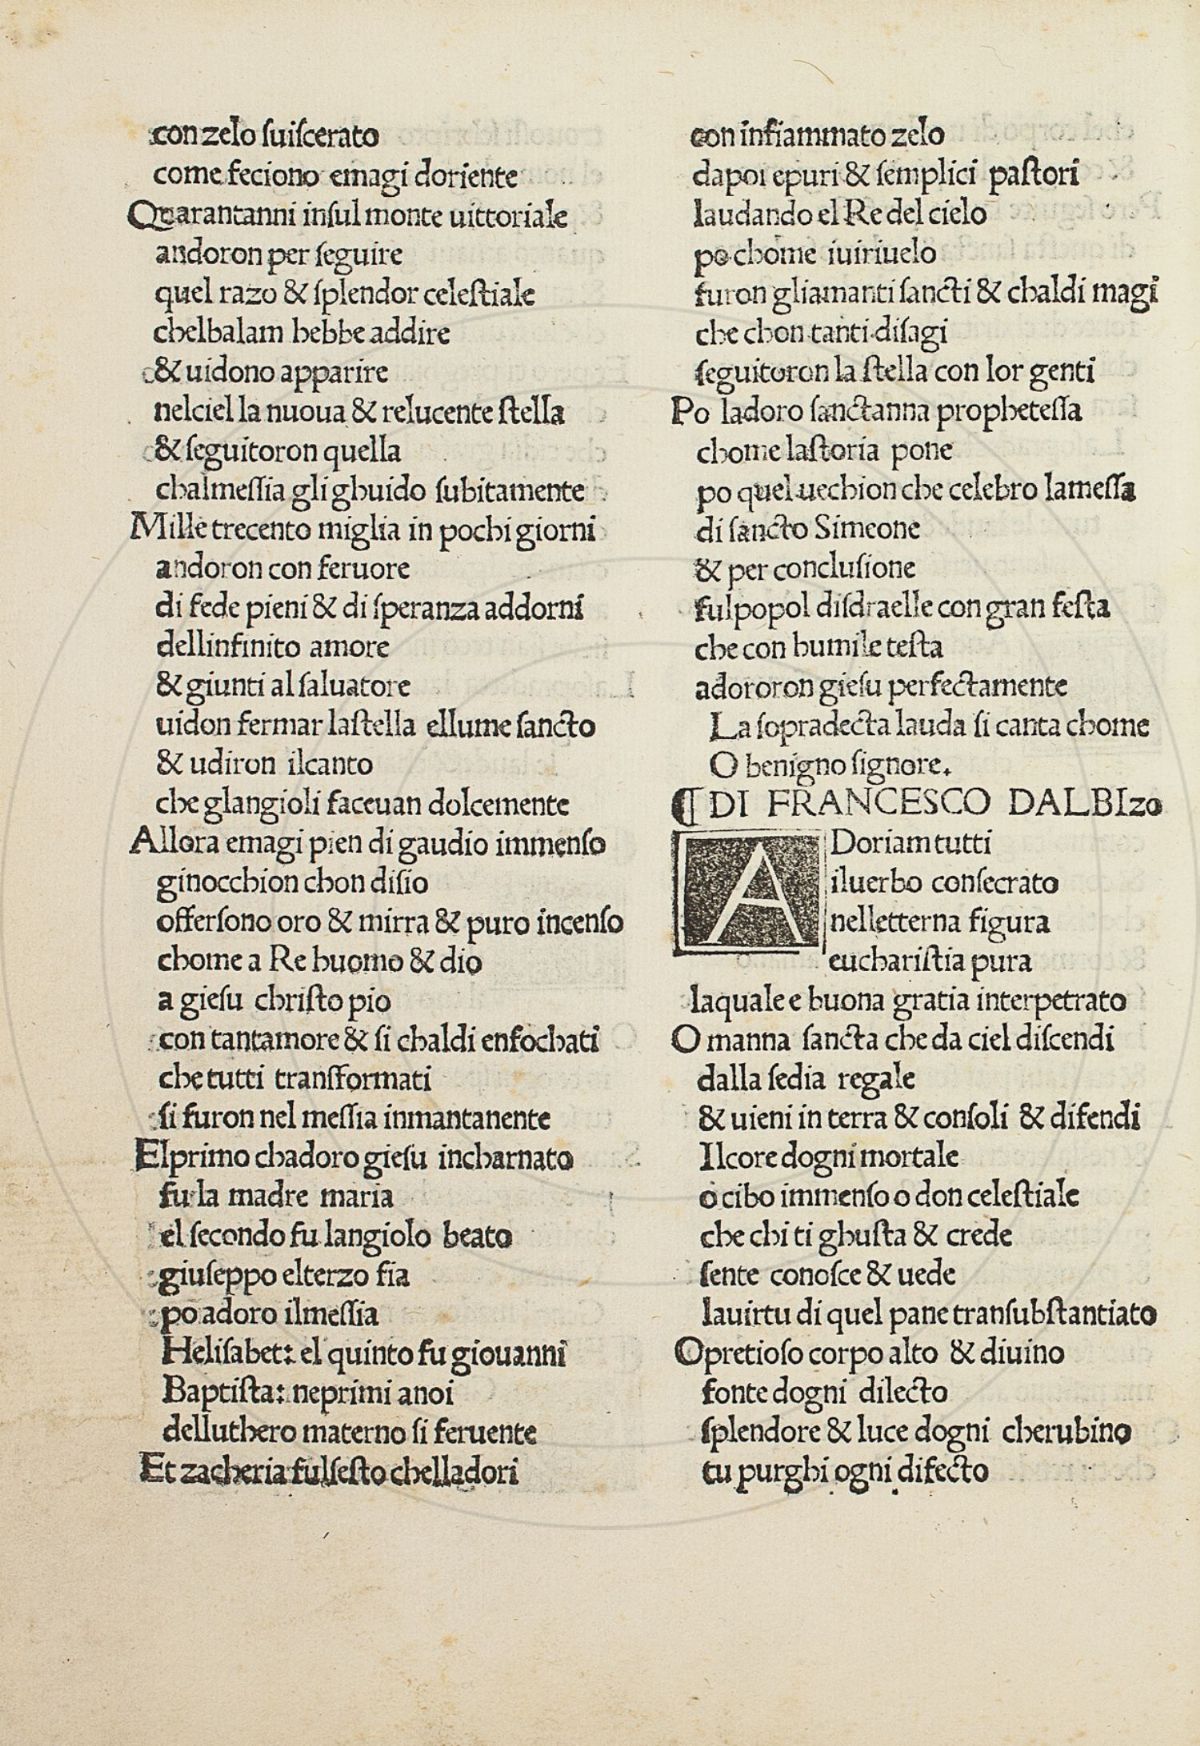 con zelo suiscerato
come feciono emagi doriente
Quarantanni insul monte uittoriale
andoron per seguire
quel razo & splendor celestiale
chelbalam hebbe addire
& uidono apparire
nelciel la nuoua & relucente stella
& seguitoron quella
chalmessia gli ghuido subitamente
Mille trecento miglia in pochi giorni
andoron con feruore
di fede pieni & di speranza addorni
dellinfinito amore
& giunti al saluatore
uidon fermar lastella ellume sancto
& udiron ilcanto
che glangioli faceuan dolcemente
Allora emagi pien di gaudio immenso
ginocchion chon disio
offersono oro & mirra & puro incenso
chome a Re huomo & dio
a giesu christo pio
con tantamore & si chaldi enfochati
che tutti transformati
si furon nel messia inmantanente
Elprimo chadoro giesu incharnato
fu la madre maria
el secondo fu langiolo beato
giuseppo elterzo fia
po adoro ilmessia
Helisabet: el quinto fu giouanni
Baptista: neprimi anoi
delluthero materno si feruente
Et zacheria fulsesto chelladori
con infiammato zelo
dapoi epuri & semplici pastori
laudando el Re del cielo
po chome iuiriuelo
furon gliamanti sancti & chaldi magi
che chon tanti disagi
seguitoron la stella con lor genti
Po ladoro sanctanna prophetessa
chome lastoria pone
po quel uechion che celebro lamessa
di sancto Simeone
& per conclusione
fulpopol disdraelle con gran festa
che con humile testa
adororon giesu perfectamente
La sopradecta lauda si canta chome
O benigno signore.
¶ DI FRANCESCO DALBIzo
ADoriam tutti
iluerbo consecrato
nelletterna figura
eucharistia pura
laquale e buona gratia interpetrato
O manna sancta che da ciel discendi
dalla sedia regale
& uieni in terra & consoli & difendi
Ilcore dogni mortale
o cibo immenso o don celestiale
che chi ti ghusta & crede
sente conosce & uede
lauirtu di quel pane transubstantiato
Opretioso corpo alto & diuino
fonte dogni dilecto
splendore & luce dogni cherubino
tu purghi ogni difecto